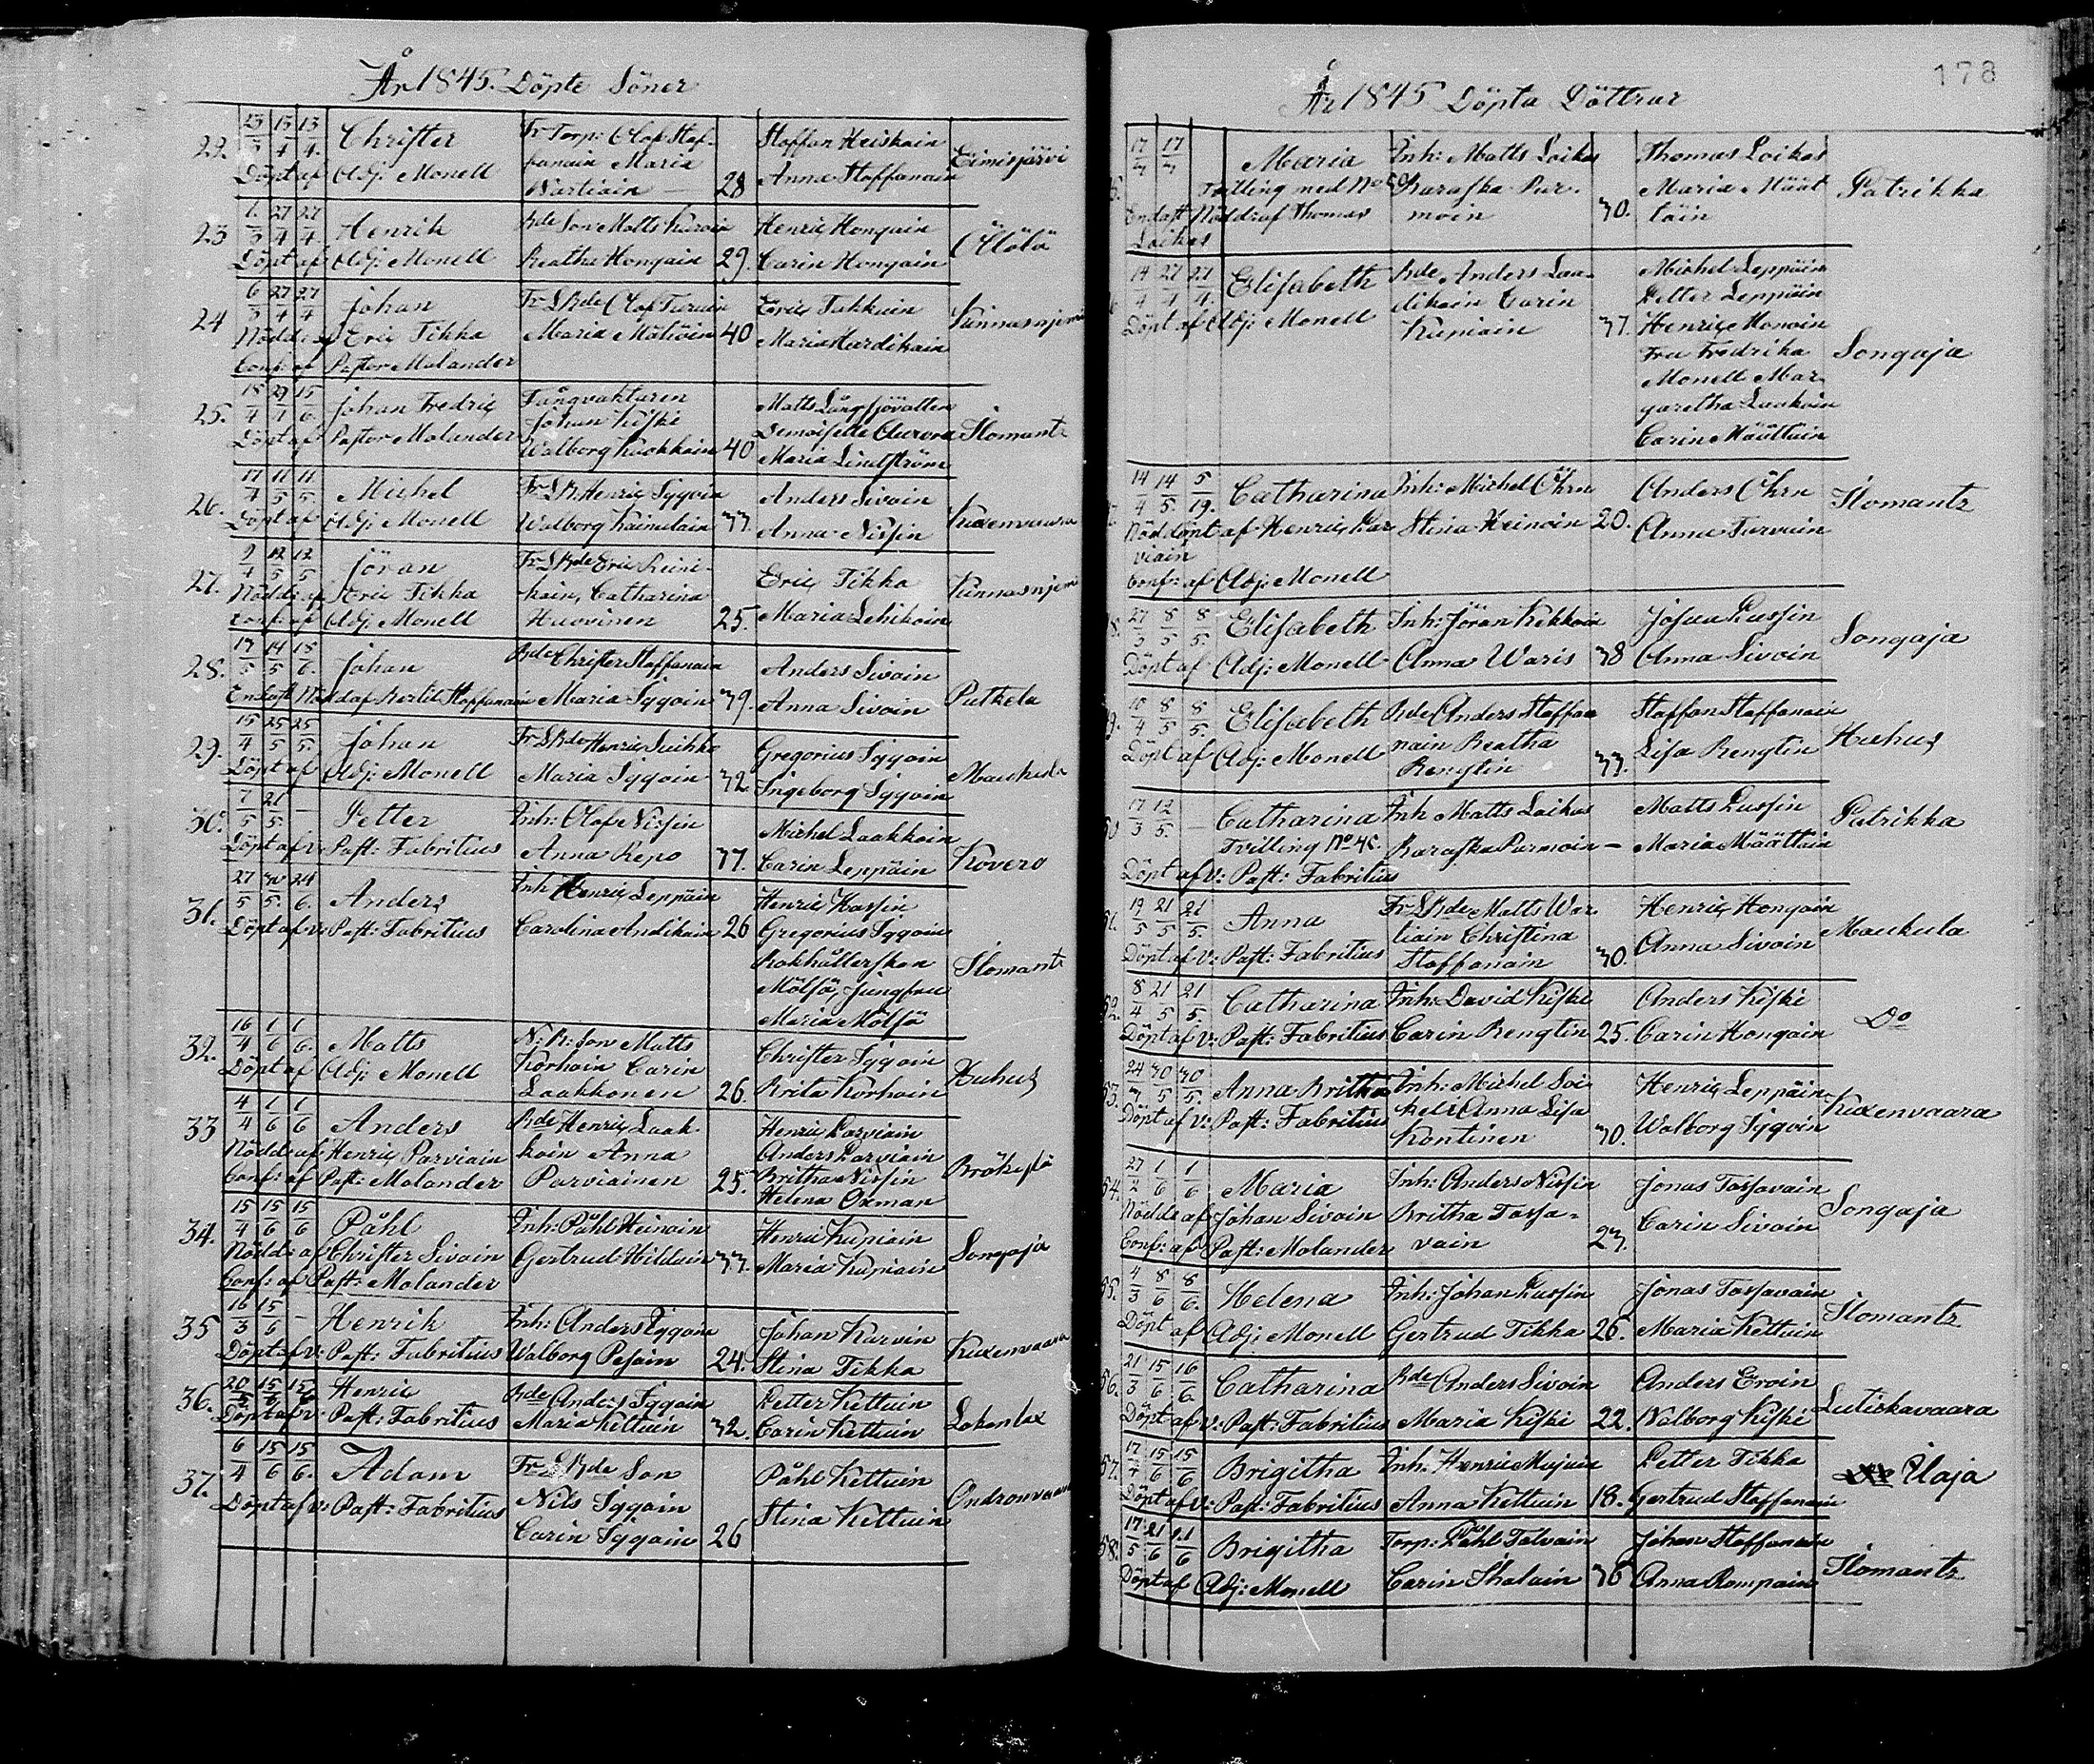 År 1845. Döpte Söner
22. 23/3 13/4 13/4. Christer Fr Torp: Olof Stof- Staffan Heiskain Eimisjärvi
Döpt af Adj: Monell fanain Maria
Wartiain — 28 Anna Staffanain
23 1./3 27/4 27/4. Henrik Bde Son Matts Henric Hongain
Döpt af Adj: Monell Beatha Hongain 29. Carin Hongain
24 6/3 27/4 27/4 Johan Fr Skde Olof Eric
Nödd: af Eric Tikka Maria 40 Maria
Conf: af Pastor Molander
25. 18/4 29/4 15/6. Johan Fredric Fångvaktaren Matts
Döpt af Pastor Molander Johan Kiiski Demoiselle Aurora Ilomants
Walborg 40 Maria Lindström
26. 17/4 11/5 11/5. Michel Fr Henric Iggoin Anders Sivoin
Döpt af Adj: Monell Walborg Kainulain 33. Anna Nissin Kuxenvaara
27. 9/4 12/5 12/5 Jöran Fr Skde Eric Reini- Eric Tikka
Nödd: af Eric Tikka kain, Catharina
Conf: af Adj: Monell Huovinen 25. Maria Lehikoin
28. 17/5 14/5 15/6. Johan Bde Christer Staffanain Anders Sivoin
Endast Nöd af Bertil Staffanain Maria Iggoin 39. Anna Sivoin Putkela
29. 15/4 25/5 25/5. Johan Fr Skde Henric Suihko Gregorius Iggoin
Döpt af Adj: Monell Maria Iggoin 32. Ingeborg Iggoin Maukula
30. 7/5 21/5. — Petter Inh: Olof Nissin Michel Laakkoin
Döpt af V: Past: Fabritius Anna Repo 33. Carin Leppäin Kovero
31. 27/5 30/5. 24/6. Anders Inh Henric Leppäin Henric
Döpt af V: Past: Fabritius Carolina Andikain 26 Gregorius Iggoin
Kokhållerskan Ilomants
Mölsä, Jungfru
Maria Mölsä
32. 16/4 1/6 1/6. Matts N: B: Son Matts Christer Iggoin
Döpt af Adj: Monell Korhoin Carin
Laakkonen 26. Brita Korhoin Huhus
33 4/4 1/6 1/6 Anders Bde Henric Laak Henric Parviain
Nödd: af Henric Parviain koin Anna Anders Parviain
Conf: af Past: Molander Parviainen 25. Britha Nissin
Helena Oxman
34. 15/4 15/6 15/6 Påhl Inh: Påhl Heinoin Henric Kupiain
Nödd: af Christer Sivoin Gertrud Hildain 33. Maria Kupiain Songaja
Conf: af Past: Molander
35 16/3 15/6 — Henrik Inh: Anders Iggoin Johan Karvin Kuxenvaara
Döpt af V: Past: Fabritius Walborg Pesoin 24. Stina Tikka
36. 20/5 15/6 15/6 Henric Bde Anders Iggoin Petter Kettuin
Döpt af V: Past: Fabritius Maria Kettuin 32. Carin Kettuin
37. 6/4 15/6 15/6. Adam Fr Skde Son Påhl Kettuin
Döpt af V: Past: Fabritius Nils Iggoin Stina Kettuin
Carin Iggoin 26
178
År 1845 Döpta Döttrar
17/3 17/3 Maria Inh: Matts Loikas Thomas Loikas
Tvilling med No 50 Karaska Pur- Maria Määt- Patrikka
Endast Nöddr af Thomas moin 30. täin
Loikas
14/4 27/4 27/4. Elisabeth Bde Anders Laa- Michel Leppäin
Döpt af Adj: Monell dikain Carin Petter Leppäin
Kupiain 37. Henric
Fru Fredrika Songaja
Monell Mar-
garetha Laakoin
Carin Määttäin
14/4 14/5 5/19. Catharina Inh: Michel Öhrn Anders Öhrn Ilomantz
Nöddöpt af Henric Par Stina Heinoin 20. Anna Turvain
viain
Conf: af Adj: Monell
27/3 8/5 8/5. Elisabeth Inh: Jöran Kekkoin Josua Pussin Songaja
Döpt af Adj: Monell Anna Waris 38 Anna Sivoin
10/4 8/5 8/5. Elisabeth Bde Anders Staffa Staffan Staffanain
Döpt af Adj: Monell nain Beatha Lisa Bengtin Huhus
Bengtin 33.
17/3 12/5. — Catharina Inh Matts Loikas Matts Pussin Patrikka
Tvilling No 45. Karaska Purmoin — Maria Määttäin
Döpt af V: Past: Fabritius
51. 19/5 21/5 21/5. Anna Fr Skde Matts War Henric Hongain
Döpt af V: Past: Fabritius tiain Christina Anna Sivoin Maukula
Staffanain 30.
52. 8/4 21/5 21/5. Catharina Inh: David Kiiski Anders Kiiski Do
Döpt af V: Past: Fabritius Carin Bengtin 25. Carin Hongain
53. 24/3 30/5 30/5. Anna Britha Inh: Michel Soi- Henric Leppäin
Döpt af V: Past: Fabritius keli Anna Lisa Walborg Iggoin Kuxenvaara
Kontinen 30.
54. 27/4 1/6 1/6 Maria Inh: Anders Nissin Jonas Tossavain
Nödd: af Johan Sivoin Britha Tossa- Carin Sivoin Songaja
Conf: af Past: Molander vain 23.
55. 4/3 8/6 8/6. Helena Inh: Johan Pussin Jonas Tossavain
Döpt af Adj: Monell Gertrud Tikka 26. Maria Kettuin Ilomantz
56. 21/3 15/6 16/6. Catharina Bde Anders Sivoin Anders Eroin
Döpt af V: Past: Fabritius Maria Kiiski 22. Walborg Kiiski Lutiskavaara
57. 17/4 15/6 15/6 Brigitha Inh: Henric Mujuin Petter Tikka Ilaja
Döpt af V: Past: Fabritius Anna Kettuin 18. Gertrud Staffanain
58. 17/5 21/6 21/6 Brigitha Torp: Påhl Tolvain Johan Staffanain
Döpt af Adj: Monell Carin Ihalain 36 Anna Rompain Ilomantz